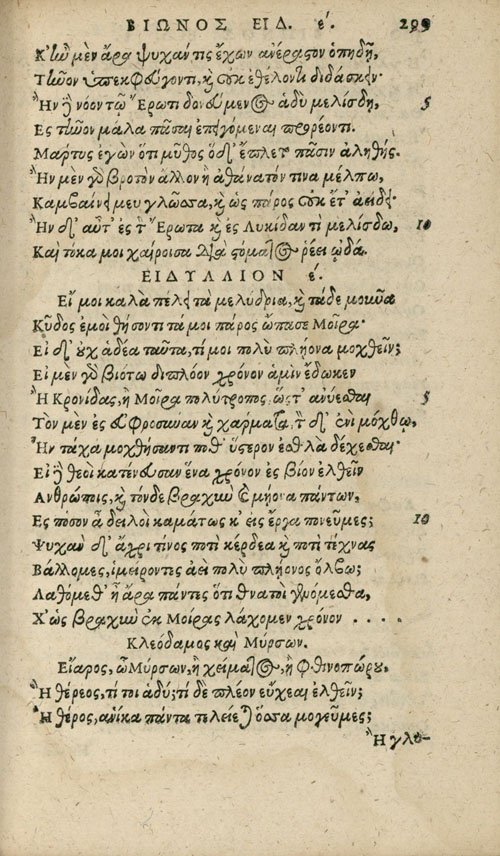 ΒΙΩΝΟΣ ΕΙΔ. έ. 299
Κ' ἢν μὲν ἄρα ψυχάν τις ἔχων ἀνέραστον ὀπηδῇ,
Τῆνον ὑπεκφεύγοντι, καὶ οὐκ ἐθέλοντι διδάσκειν·
Ἢν δὲ νόον τῷ Ἔρωτι δονεύμενος ἁδὺ μελίσδῃ, 5
Ες τῆνον μάλα πᾶσαι ἐπειγόμεναι προρέοντι.
Μάρτυς ἐγὼν ὅτι μῦθος ὅδ' ἔπλετο πᾶσιν ἀληθής.
Ἢν μὲν γὰρ βροτὸν ἄλλον ἢ ἀθάνατόν τινα μέλπω,
Καμβαίνει μευ γλῶσσα, καὶ ὡς πάρος οὐκ ἔτ' ἀείδει·
Ἢν δ' αὖτ' ἐς τὸν Ἔρωτα καὶ ἐς Λυκίδαν τὶ μελίσδω, 10
Καὶ τόκα μοι χαίροισα διὰ στόματος ῥέει ᾠδά.
ΕΙΔΥΛΛΙΟΝ έ.
Εἴ μοι καλὰ πέλει τὰ μελύδρια, καὶ τάδε μοῦνα
Κῦδος ἐμοὶ θήσοντι τά μοι πάρος ὤπασε Μοῖρα·
Εἰ δ' οὐχ ἁδέα ταῦτα, τί μοι πολὺ πλήονα μοχθεῖν;
Εἰ μὲν γὰρ βιότω διπλόον χρόνον ἄμιν ἔδωκεν
Ἢ Κρονίδας, ἢ Μοῖρα πολύτροπος, ὥστ' ἀνύεσθαι 5
Τὸν μὲν ἐς εὐφροσύναν καὶ χάρματα, τὸν δ' ἐνὶ μόχθῳ,
Ἦν τάχα μοχθήσαντι ποθ' ὕστερον ἐσθλὰ δέχεσθαι·
Εἰ δὲ θεοὶ κατένευσαν ἕνα χρόνον ἐς βίον ἐλθεῖν
Ανθρώποις, καὶ τόνδε βραχὺν καὶ μήονα πάντων,
Ες πόσον ἆ δειλοὶ καμάτως κ' εἰς ἔργα πονεῦμες; 10
Ψυχὰν δ' ἄχρι τίνος ποτὶ κέρδεα καὶ ποτὶ τέχνας
Βάλλομες, ἱμείροντες ἀεὶ πολὺ πλήονος ὄλβω;
Λαθόμεθ' ἦ ἄρα πάντες ὅτι θνατοὶ γενόμεσθα,
Χ' ὡς βραχὺν ἐκ Μοίρας λάχομεν χρόνον ....
Κλεόδαμος καὶ Μύρσων.
Εἴαρος, ὦ Μύρσων, ἢ χείματος, ἢ φθινοπώρου,
Ἢ θέρεος, τί τοι ἁδύ; τί δὲ πλέον εὔχεαι ἐλθεῖν;
Ἢ θέρος, ἁνίκα πάντα τελείεται ὅσσα μογεῦμες;
Ἢ γλυ-